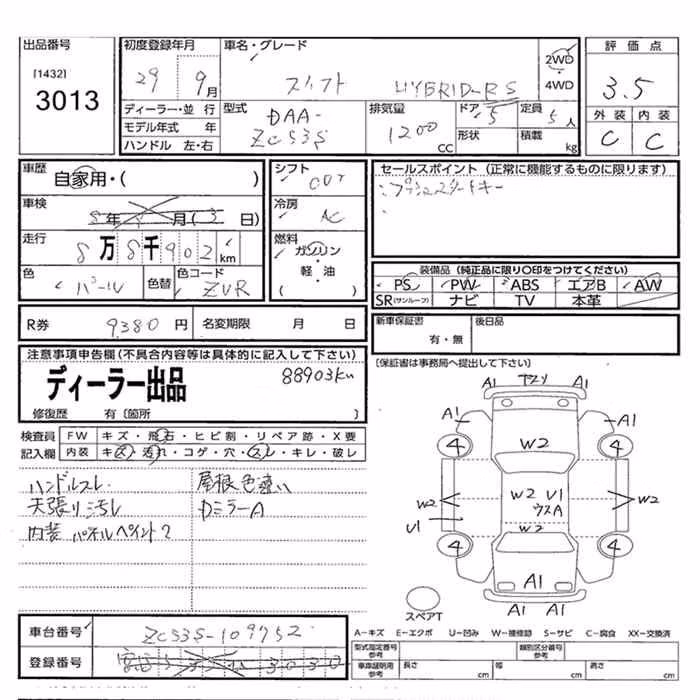 出品番号
[1432]
3013
初度登録年月
29 9月
車名・グレード
スイフト HYBRID-RS
2WD
・
4WD
評価点
3.5
外装 内装
C C
ディーラー・並 行
モデル年式 年
ハンドル 左・右
型式
DAA-
ZC53S
排気量
1200
CC
ドア
5
形状
定員
5人
積載
kg
車歴
自家用・( )
車検
年 月( 日)
走行
8万8千902
km
色
パール
色替
色コード
ZVR
シフト
CVT
冷房
AC
燃料
ガソリン
・
軽・油
( )
セールスポイント (正常に機能するものに限ります)
プッシュスタートキー
装備品 (純正品に限り○印をつけてください)
PS PW ABS エアB AW
SR(サンルーフ) ナビ TV 本革
R券 9380円 名変期限 月 日
新車保証書
有・無
後日品
(保証書は事務局へ提出して下さい)
注意事項申告欄(不具合内容等は具体的に記入して下さい)
ディーラー出品
88903km
修復歴 有〔箇所 〕
検査員
記入欄
FW キズ・飛石・ヒビ割・リペア跡・X要
内装 キズ・汚れ・コゲ・穴・スレ・キレ・破レ
ハンドルスレ
天張り汚れ
内装パネルペイント?
屋根色違い
カミラーA
A1 A1
A1 A1
4 4
W2
W2 W2 U1 W2
ウスA
U1
W2
4 4
A1
A1 A1
スペアT
車台番号 ZC53S-109752
登録番号
A-キズ E-エクボ U-凹み W-補修跡 S-サビ C-腐食 XX-交換済
型式指定番号
参考
類別区分番号
参考
車庫証明用
参考
長さ cm
幅 cm
高さ cm